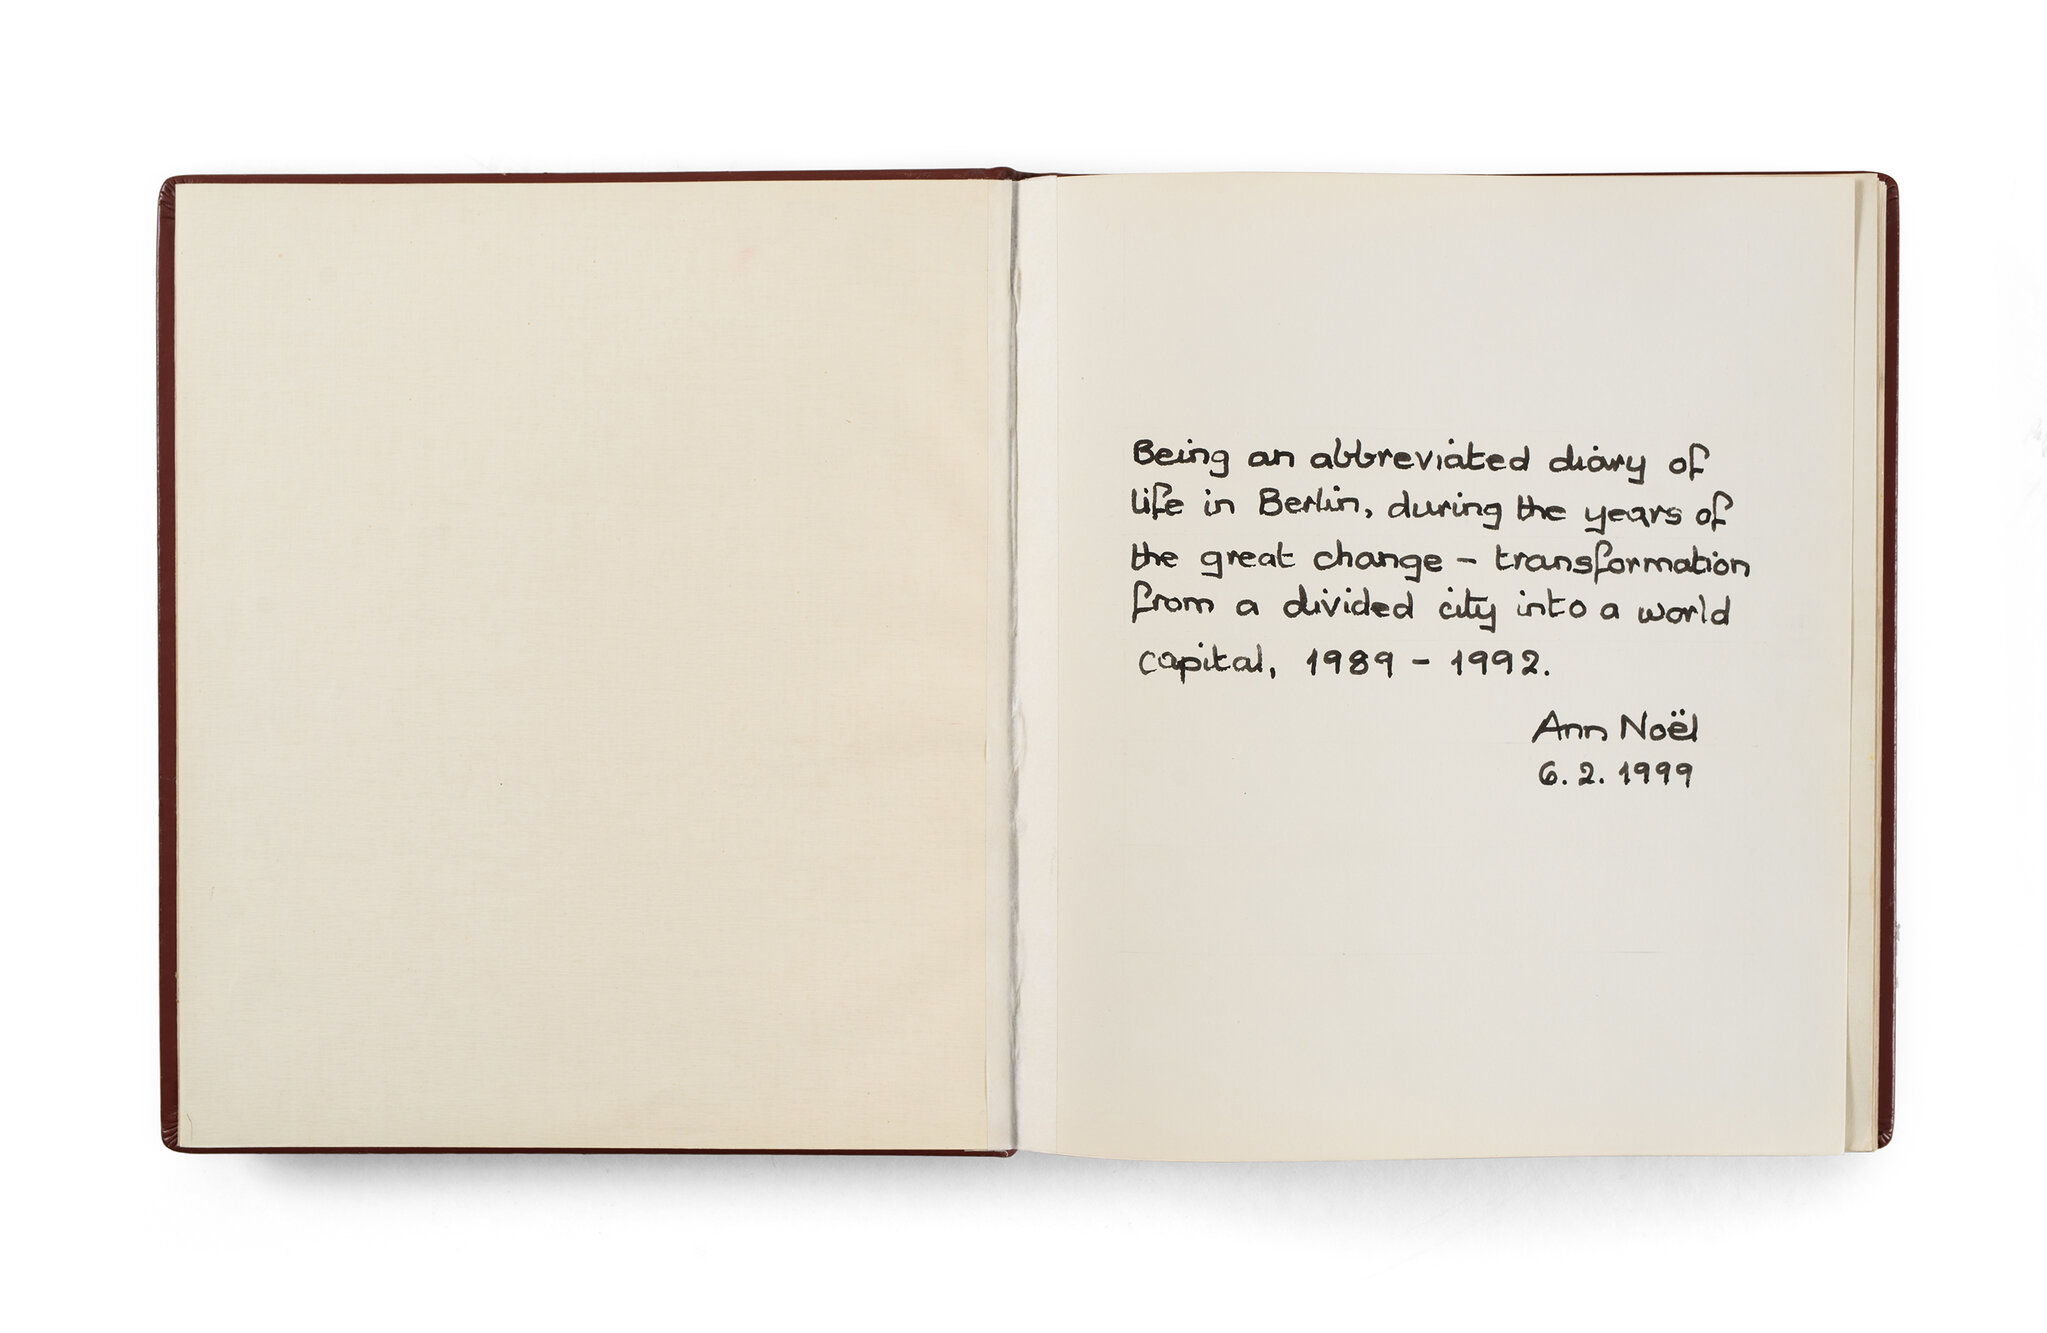 Being an abbreviated diary of
life in Berlin, during the years of
the great change – transformation
from a divided city into a world
capital, 1989 – 1992.
Ann Noël
6. 2. 1999